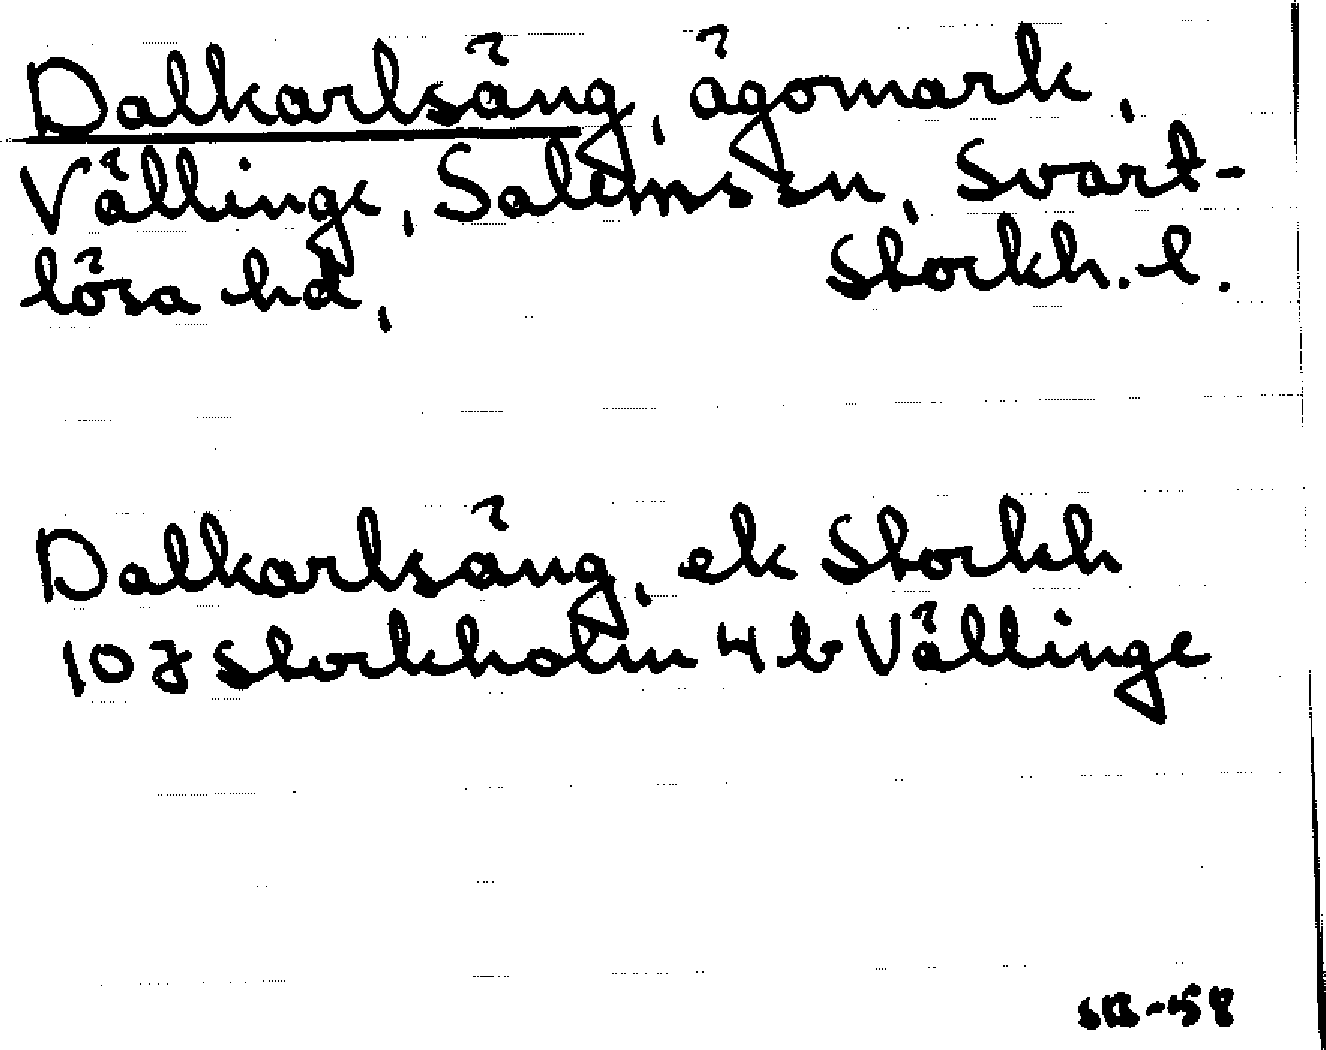 Dalkarlsäng, ägomark,
Vällinge, Salems sn, Svart-
lösa hd, Stockh. l.
Dalkarlsäng, ek Stockh
10J Stockholm 4b Vällinge